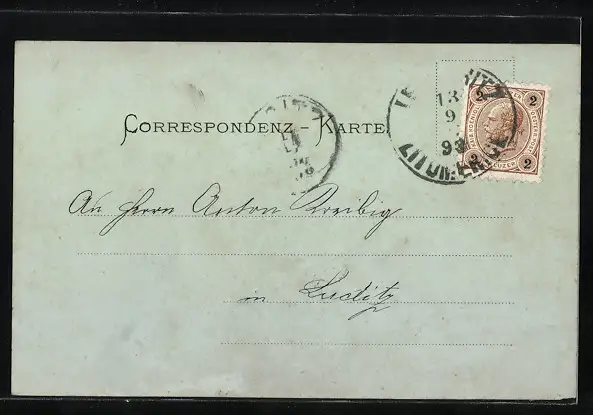 CORRESPONDENZ - KARTE.
2 2
13
9
93
LITOMĚŘICE
KREUZER
2 2
An Herrn Anton Kreibig
in Luditz